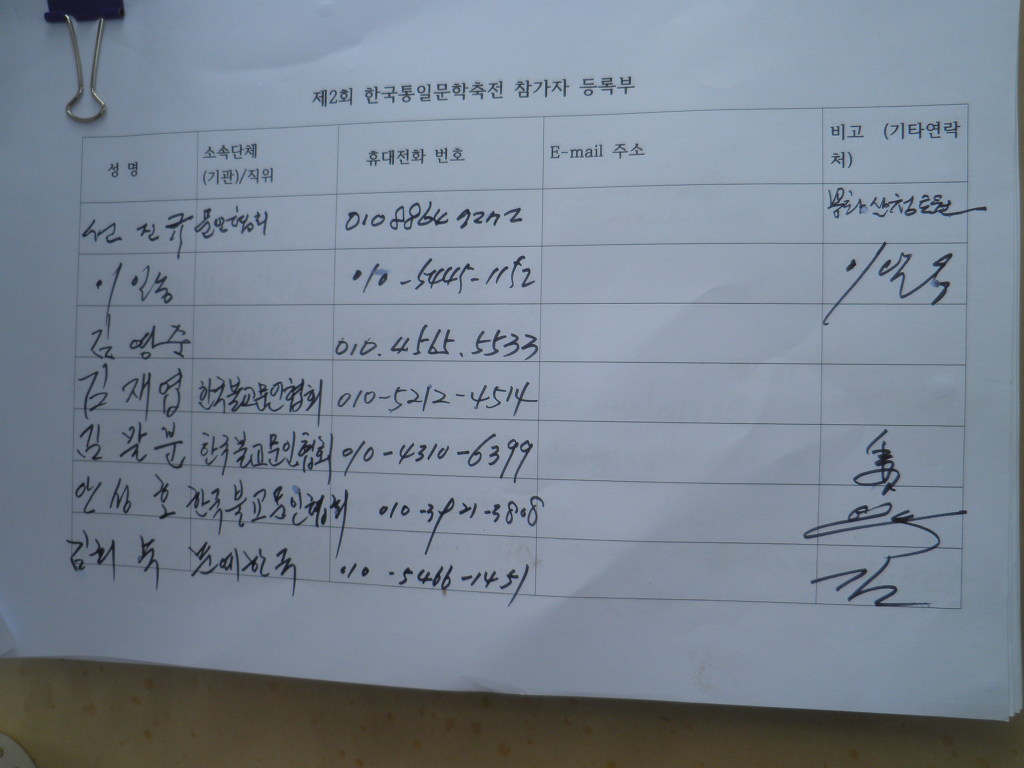 제2회 한국통일문학축전 참가자 등록부
성명 소속단체 (기관)/직위 휴대전화 번호 E-mail 주소 비고 (기타연락처)
선진규 문인협회 010 8864
이일농 010-5445-1152
김영주 010.4565.5533
김재엽 한국불교문인협회 010-5212-4514
김발분 한국불교문인협회 010-4310-6399
안성호 한국불교문인협회 010-3921-3808
김희목 문예한국 010-5466-1451